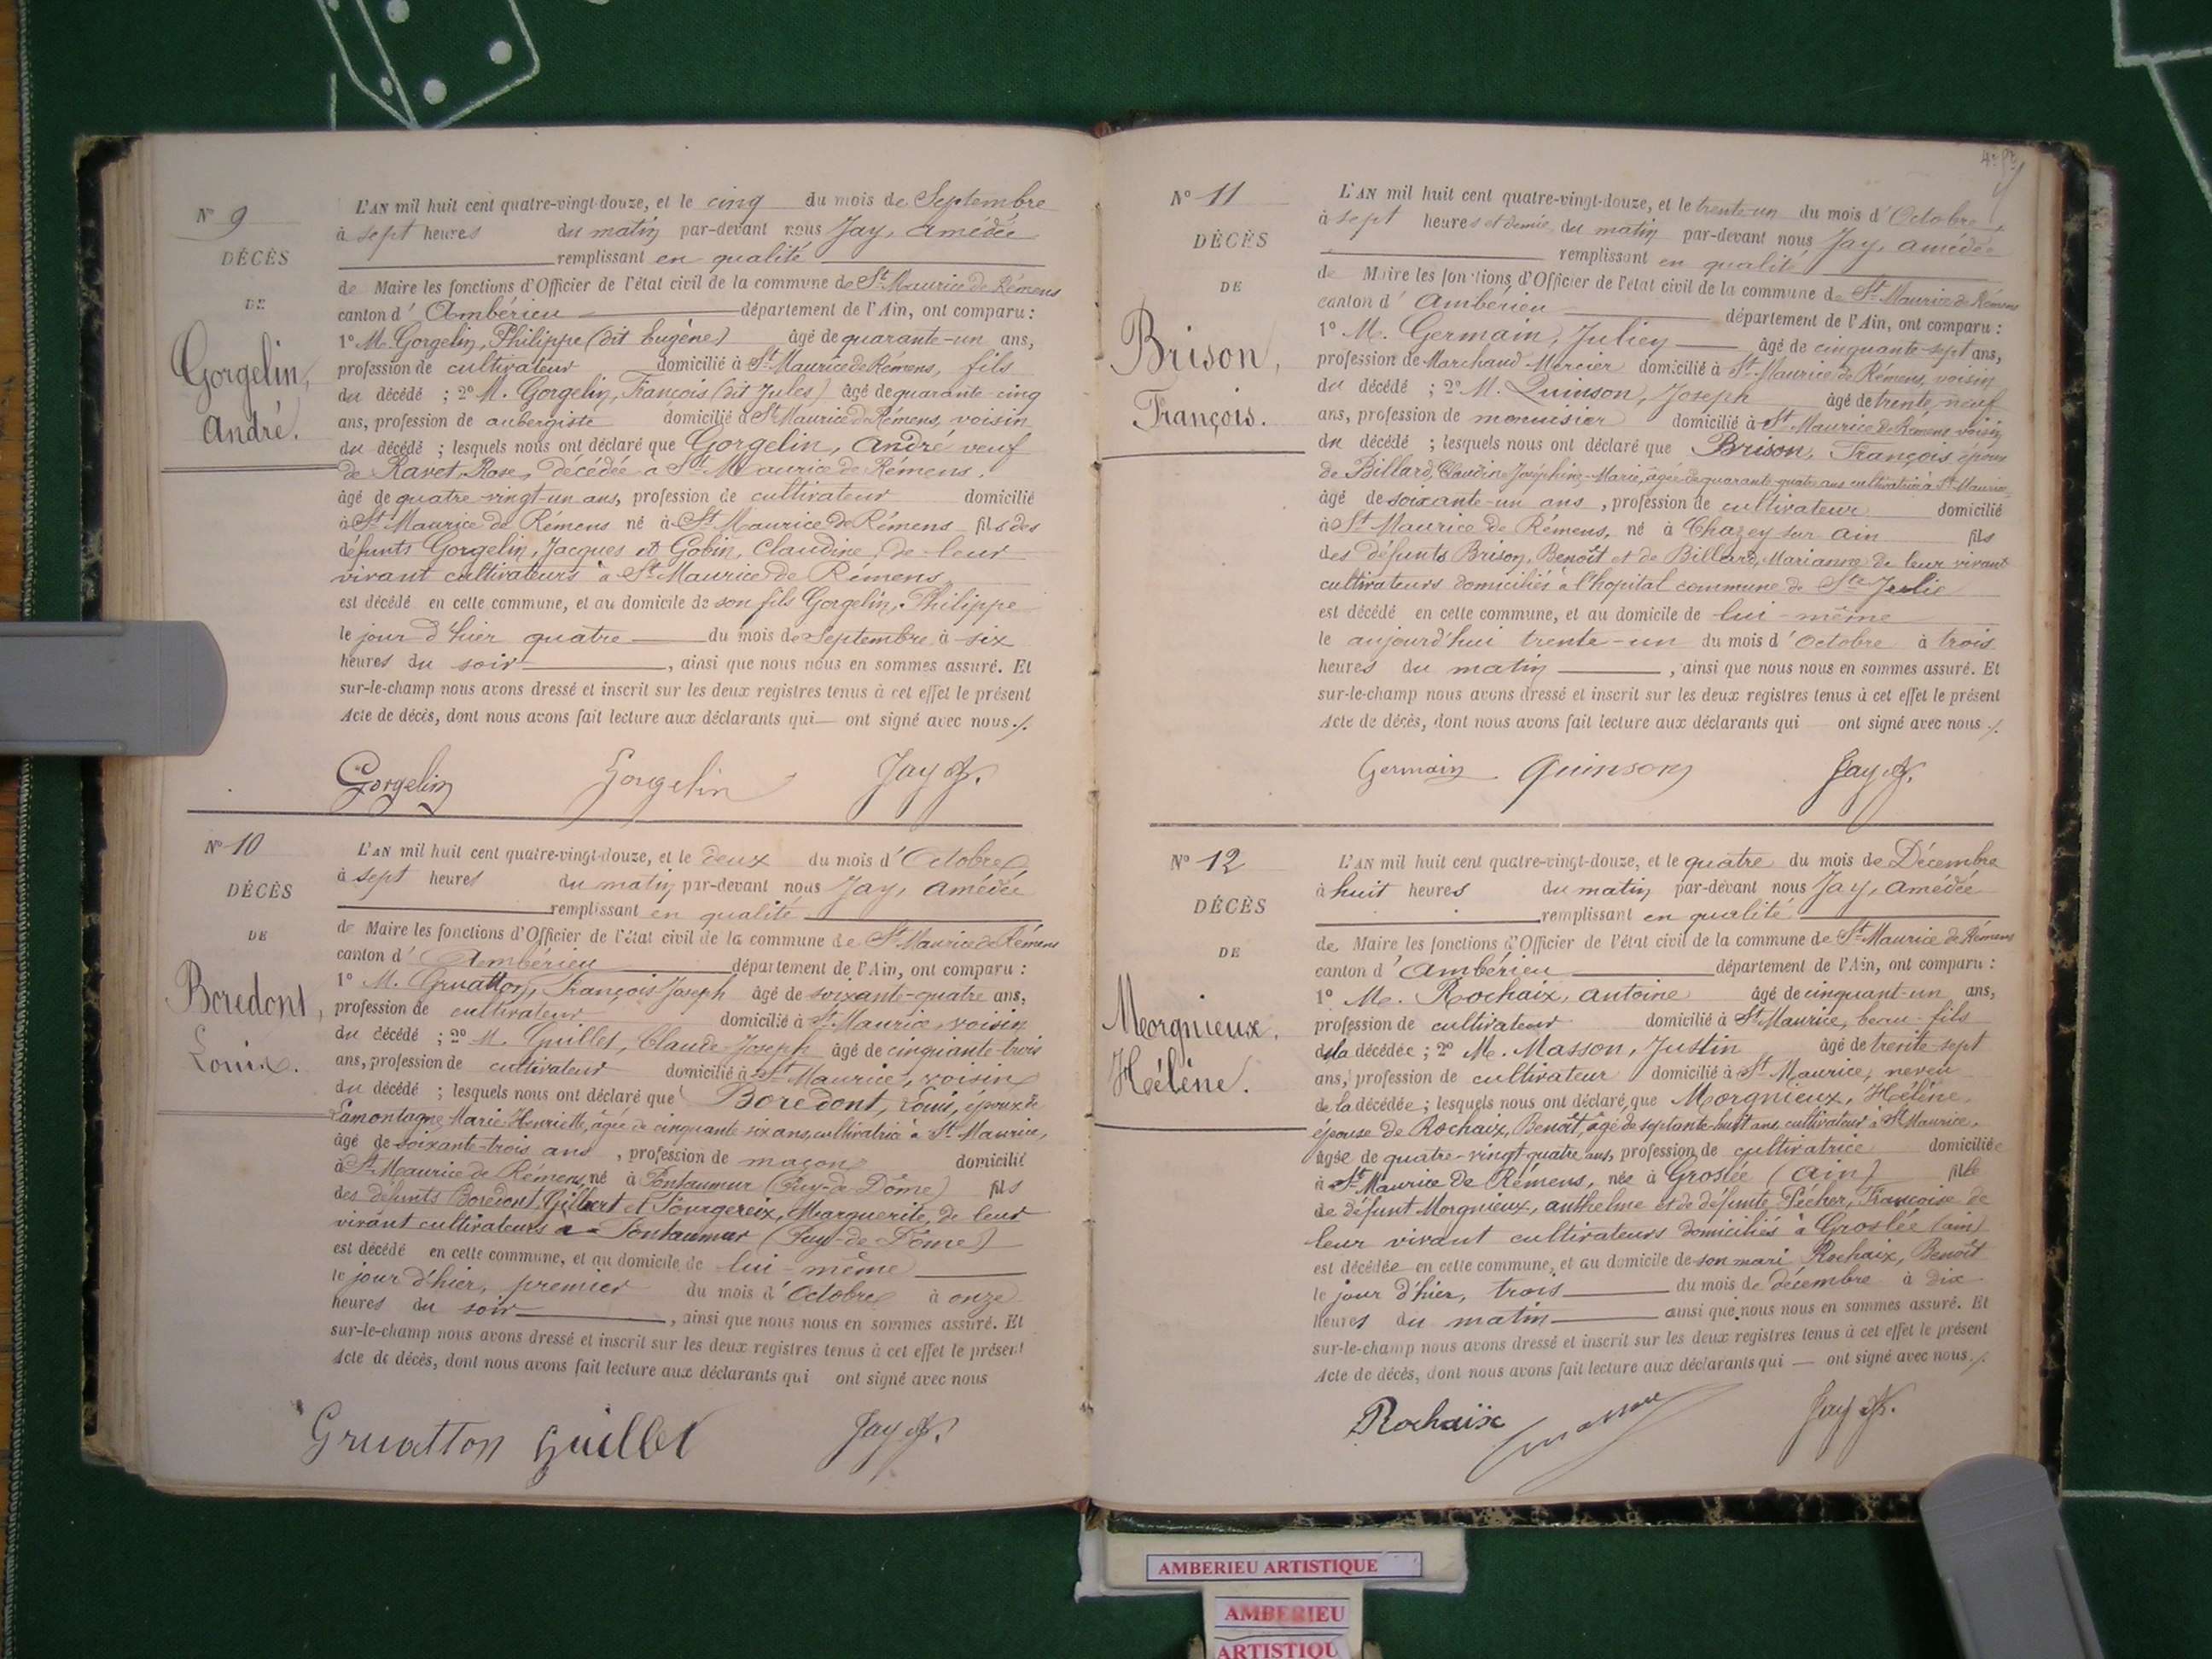 Nº 9
DÉCÈS
DE
Gorgelin,
André.
L'AN mil huit cent quatre-vingt-douze, et le cinq du mois de Septembre
à sept heures du matin par-devant nous Jay, Amédée
remplissant en qualité
de Maire les fonctions d'Officier de l'état civil de la commune de St Maurice de Rémens
canton d' Ambérieu département de l'Ain, ont comparu :
1º M. Gorgelin, Philippe (dit Eugène) âgé de quarante-un ans,
profession de cultivateur domicilié à St Maurice de Rémens, fils
du décédé ; 2º M. Gorgelin, François (dit Jules) âgé de quarante-cinq
ans, profession de aubergiste domicilié à St Maurice de Rémens, voisin
du décédé ; lesquels nous ont déclaré que Gorgelin, André veuf
de Ravet, Rose, décédée à St Maurice de Rémens,
âgé de quatre-vingt-un ans, profession de cultivateur domicilié
à St Maurice de Rémens né à St Maurice de Rémens fils des
défunts Gorgelin, Jacques et Gobin, Claudine, de leur
vivant cultivateurs à St Maurice de Rémens
est décédé en cette commune, et au domicile de son fils Gorgelin, Philippe
le jour d'hier quatre du mois de Septembre à six
heures du soir, ainsi que nous nous en sommes assuré. Et
sur-le-champ nous avons dressé et inscrit sur les deux registres tenus à cet effet le présent
Acte de décès, dont nous avons fait lecture aux déclarants qui ont signé avec nous ./.
Gorgelin Gorgelin Jay A.
Nº 10
DÉCÈS
DE
Boredont,
Louis.
L'AN mil huit cent quatre-vingt-douze, et le deux du mois d'Octobre
à sept heures du matin par-devant nous Jay, Amédée
remplissant en qualité
de Maire les fonctions d'Officier de l'état civil de la commune de St Maurice de Rémens
canton d' Ambérieu département de l'Ain, ont comparu :
1º M. Gruatton, François Joseph âgé de soixante-quatre ans,
profession de cultivateur domicilié à St Maurice, voisin
du décédé ; 2º M. Guillet, Claude-Joseph âgé de cinquante-trois
ans, profession de cultivateur domicilié à St Maurice, voisin
du décédé ; lesquels nous ont déclaré que Boredont, Louis, époux de
Lamontagne Marie Henriette, âgée de cinquante-six ans, cultivatrice à St Maurice,
âgé de soixante-trois ans, profession de maçon domicilié
à St Maurice de Rémens, né à Pontaumur (Puy-de-Dôme) fils
des défunts Boredont, Gilbert et Fourgereix, Marguerite, de leur
vivant cultivateurs à Pontaumur (Puy-de-Dôme)
est décédé en cette commune, et au domicile de lui-même
le jour d'hier, premier du mois d'Octobre à onze
heures du soir, ainsi que nous nous en sommes assuré. Et
sur-le-champ nous avons dressé et inscrit sur les deux registres tenus à cet effet le présent
Acte de décès, dont nous avons fait lecture aux déclarants qui ont signé avec nous
Gruatton Guillet Jay A.
Nº 11
DÉCÈS
DE
Brison,
François.
L'AN mil huit cent quatre-vingt-douze, et le trente-un du mois d'Octobre,
à sept heures et demie du matin par-devant nous Jay, Amédée
remplissant en qualité
de Maire les fonctions d'Officier de l'état civil de la commune de St Maurice de Rémens
canton d' Ambérieu département de l'Ain, ont comparu :
1º M. Germain, Julien âgé de cinquante-sept ans,
profession de Marchand-Mercier domicilié à St Maurice de Rémens, voisin
du décédé ; 2º M. Quinson, Joseph âgé de trente-neuf
ans, profession de menuisier domicilié à St Maurice de Rémens, voisin
du décédé ; lesquels nous ont déclaré que Brison, François époux
de Billard, Claudine Joséphine-Marie, âgée de quarante-quatre ans cultivatrice à St Maurice,
âgé de soixante-un ans, profession de cultivateur domicilié
à St Maurice de Rémens, né à Chazey sur Ain fils
des défunts Brison, Benoît et de Billard, Marianne de leur vivant
cultivateurs domiciliés à l'hopital commune de Ste Julie
est décédé en cette commune, et au domicile de lui-même
le aujourd'hui trente-un du mois d'Octobre à trois
heures du matin, ainsi que nous nous en sommes assuré. Et
sur-le-champ nous avons dressé et inscrit sur les deux registres tenus à cet effet le présent
Acte de décès, dont nous avons fait lecture aux déclarants qui ont signé avec nous ./.
Germain Quinson Jay A.
Nº 12
DÉCÈS
DE
Morgnieux,
Hélène.
L'AN mil huit cent quatre-vingt-douze, et le quatre du mois de Décembre
à huit heures du matin par-devant nous Jay, Amédée
remplissant en qualité
de Maire les fonctions d'Officier de l'état civil de la commune de St Maurice de Rémens
canton d' Ambérieu département de l'Ain, ont comparu :
1º M. Rochaix, Antoine âgé de cinquant-un ans,
profession de cultivateur domicilié à St Maurice, beau-fils
de la décédée ; 2º M. Masson, Justin âgé de trente-sept
ans, profession de cultivateur domicilié à St Maurice, neveu
de la décédée ; lesquels nous ont déclaré que Morgnieux, Hélène,
épouse de Rochaix, Benoît, âgé de septante-huit ans, cultivateur à St Maurice,
âgée de quatre-vingt-quatre ans, profession de cultivatrice domiciliée
à St Maurice de Rémens, née à Groslée (Ain) fille
de défunt Morgnieux, Anthelme et de défunte Pécher, Françoise de
leur vivant cultivateurs domiciliés à Groslée (Ain)
est décédée en cette commune, et au domicile de son mari Rochaix, Benoît
le jour d'hier, trois du mois de décembre à dix
heures du matin ainsi que nous nous en sommes assuré. Et
sur-le-champ nous avons dressé et inscrit sur les deux registres tenus à cet effet le présent
Acte de décès, dont nous avons fait lecture aux déclarants qui ont signé avec nous ./.
Rochaix Masson Jay A.
AMBERIEU ARTISTIQUE
AMBERIEU
ARTISTIQU